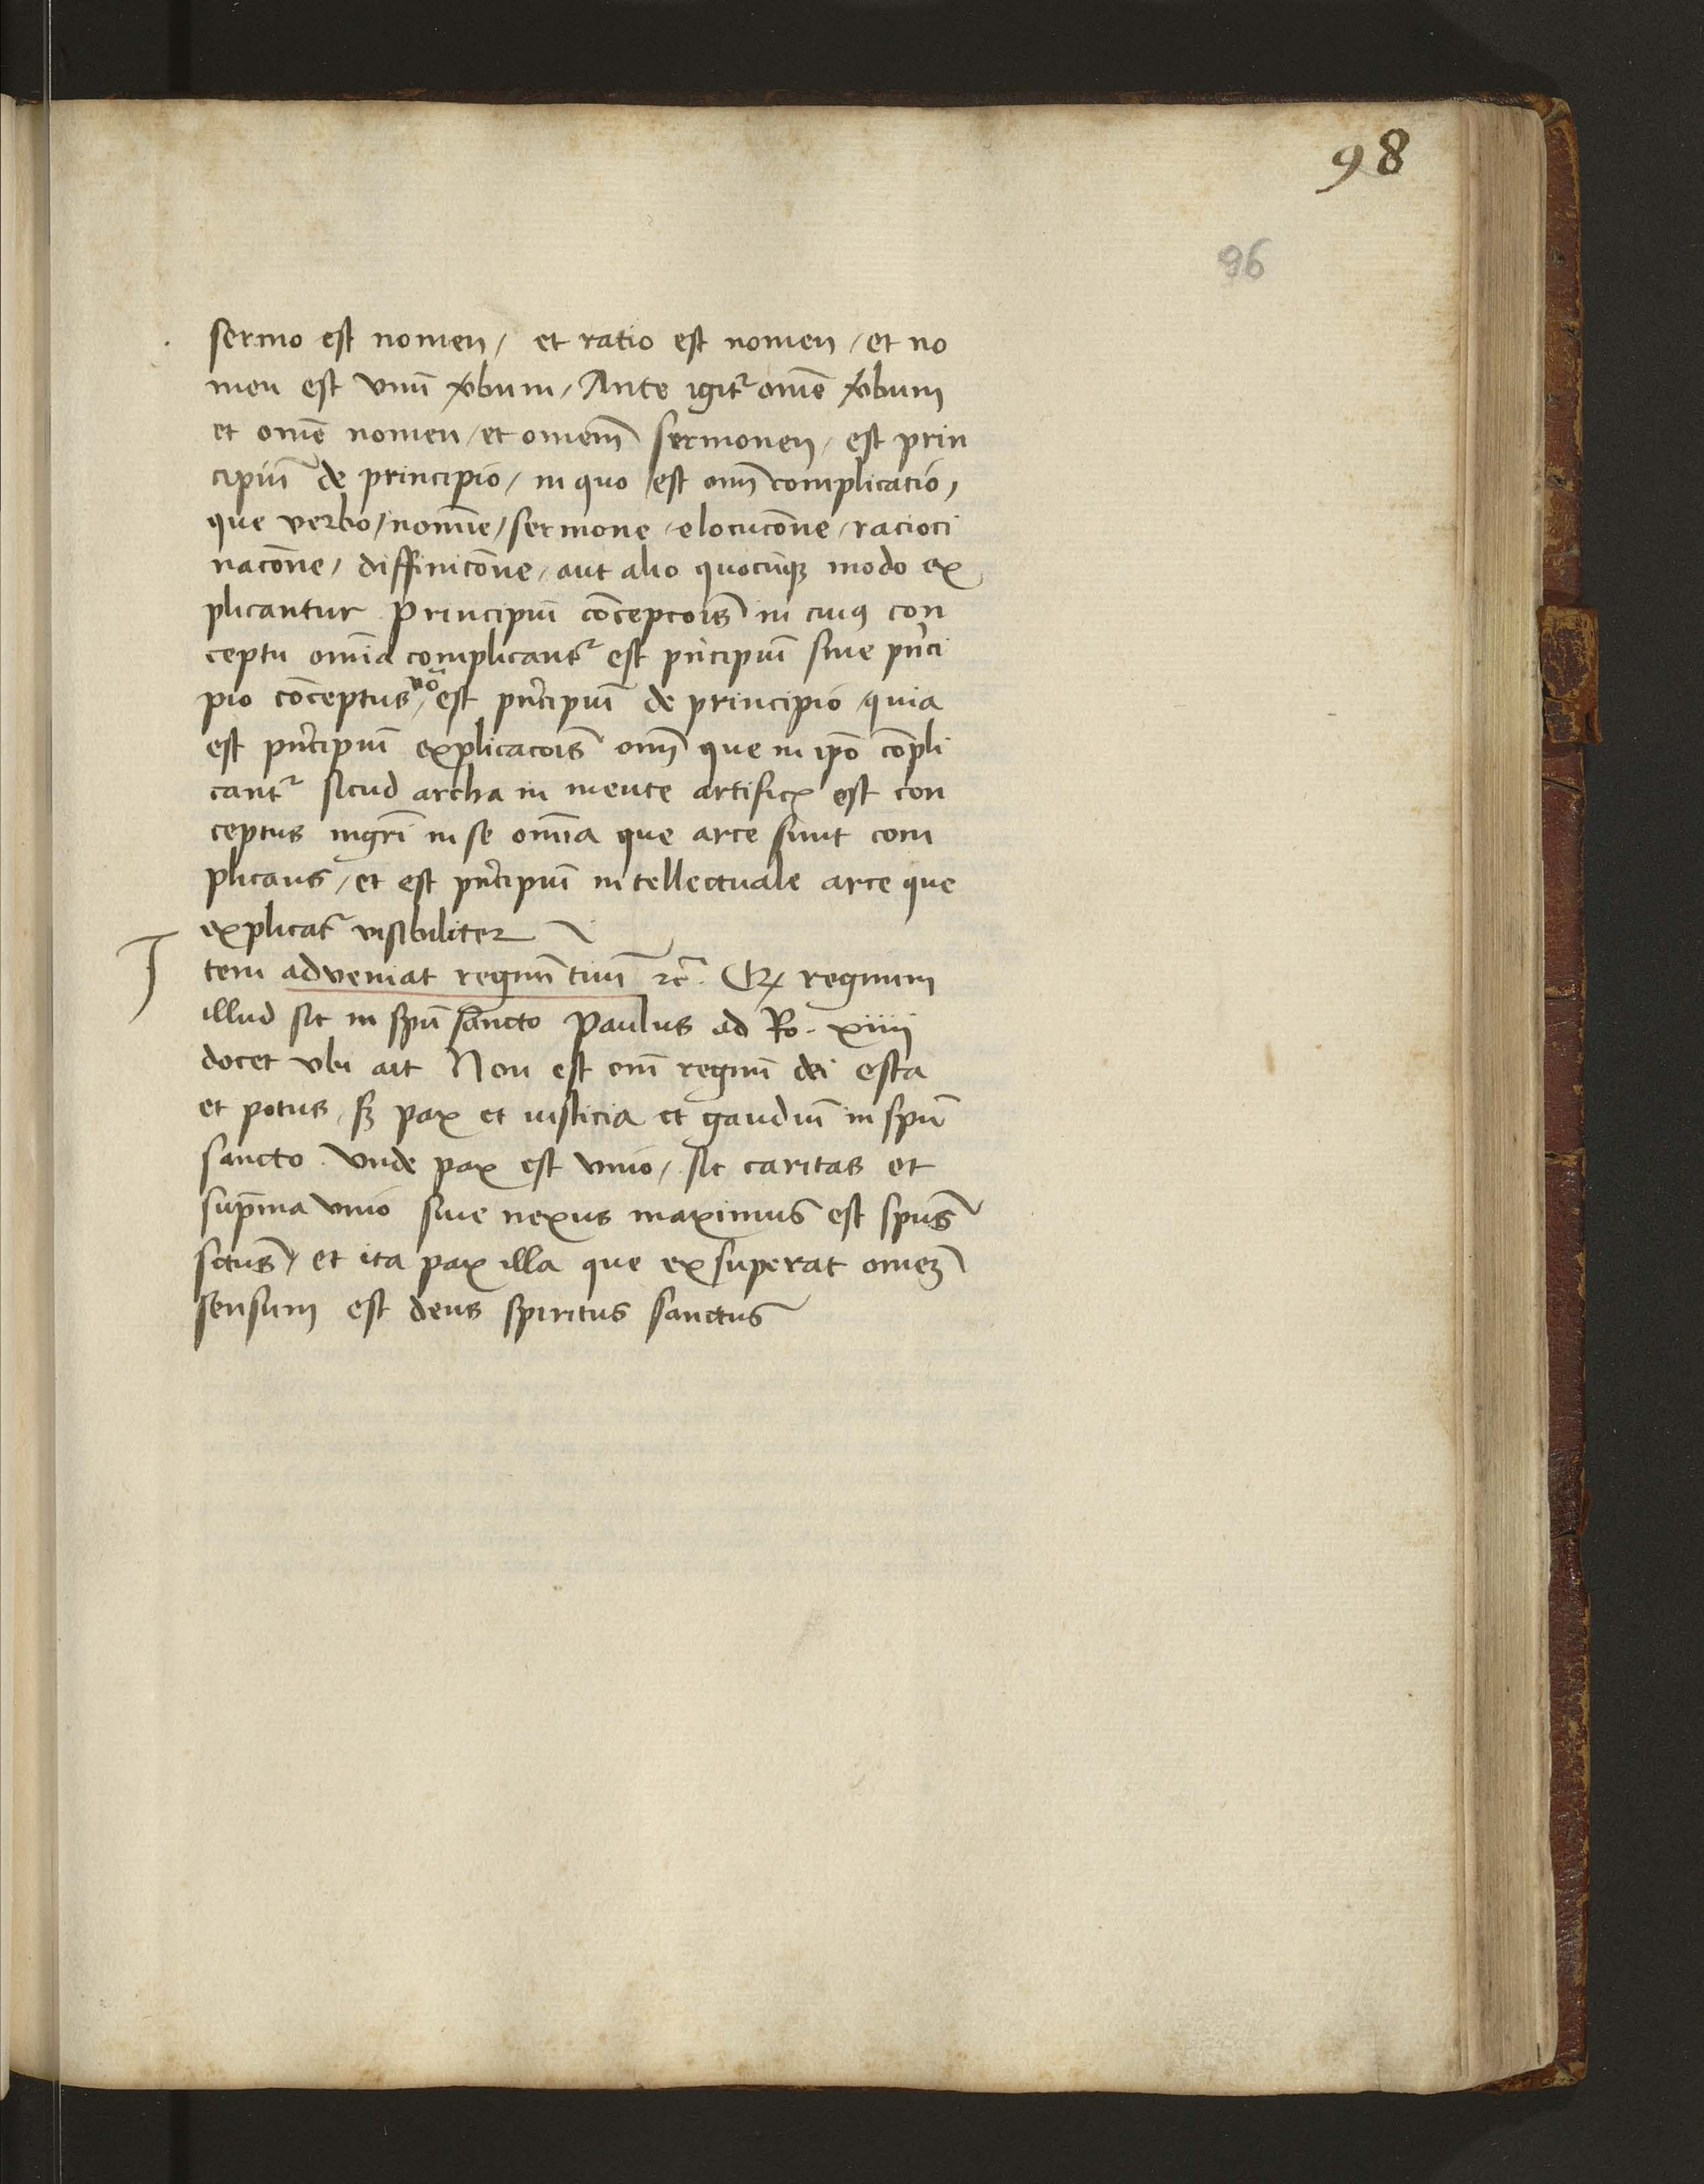 98
96
sermo est nomen / et ratio est nomen / et no
men est vnu̅ v̓bum / Ante igit᷑ om̅e v̓bum
et om̅e nomen / et omem̅ sermonem / est prin
cipiu̅ de principio / in quo est om̅ complicatio /
que verbo / nomi̅e / sermone / elocuco̅ne / racioci
naco̅ne / diffinico̅ne / aut alio quocu̅qꝫ modo ex
plicantur Principiu̅ co̅cepcois̅ in cuiꝰ con
ceptu om̅ia complicant᷑ est pri̅cipiu̅ sine pri̅ci
pio co̅ceptus / vo̅ est pri̅cipiu̅ de principio / quia
est pri̅cipiu̅ explicacois̅ om̅ que in ip̅o co̅pli
cant᷑ sicud archa in mente artificꝭ est con
ceptus mgri̅ in se om̅ia que arce sunt com
plicans / et est pri̅cipiu̅ intellectuale arce que
explicat᷑ visibiliter
Item adveniat regnu̅ tuu̅ ⁊c̅. Qꝫ regnum
illud sit in sp̅u sancto Paulus ad Ro. xiiii
docet vbi ait Non est eni̅ regnu̅ dei esca
et potus / sꝫ pax et iusticia et gaudiu̅ in sp̅u
sancto . Vnde pax est vnio / sic caritas et
sup̅ma vnio siue nexus maximus est sp̅us
sctu̅s / et ita pax illa que exsuperat omeꝫ̅
sensum est deus spiritus sanctus